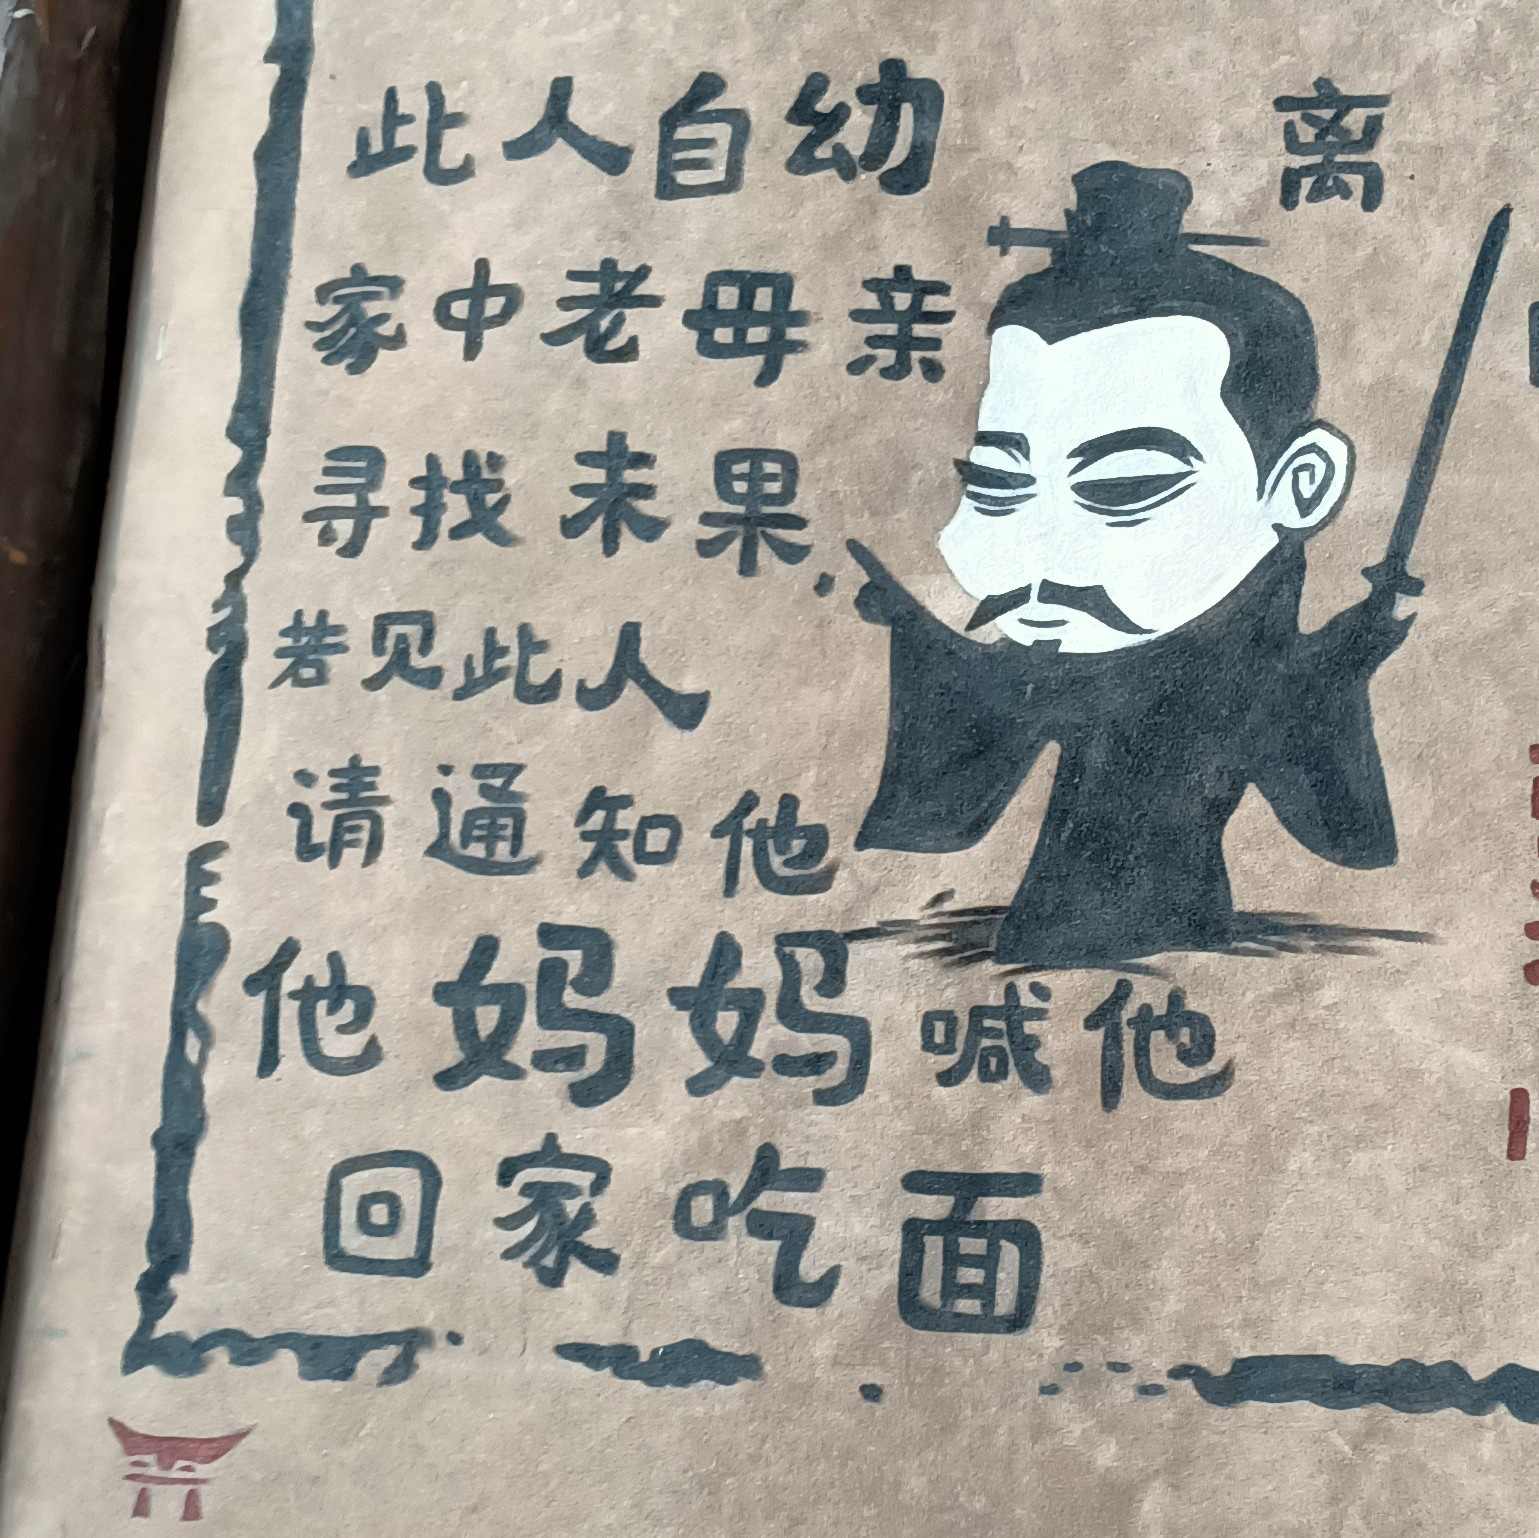 此人自幼离
家中老母亲
寻找未果.
若见此人
请通知他
他妈妈喊他
回家吃面